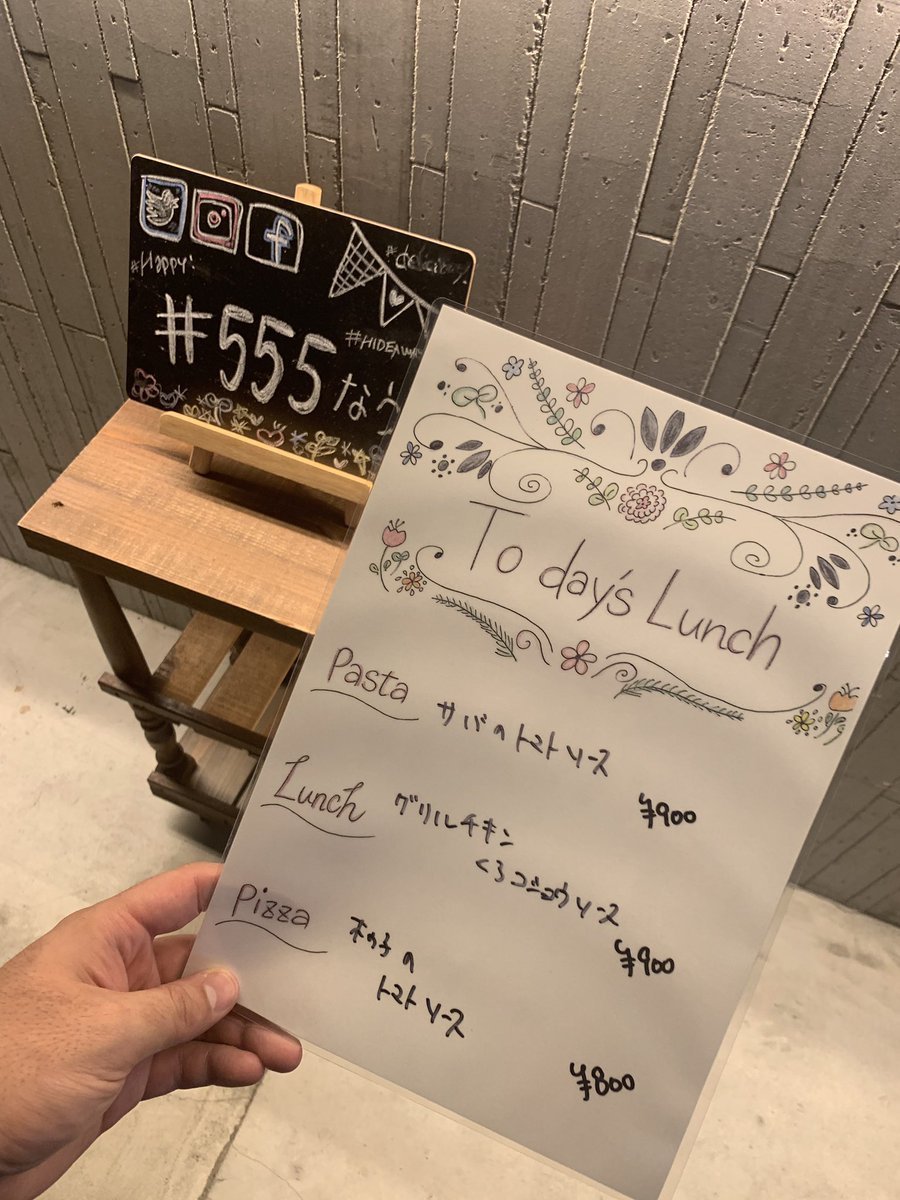 #Happy!
#delicious
#555
#HIDEAWAY
なう
To day's Lunch
Pasta
サバのトマトソース
¥900
Lunch
グリルチキン
くろコショウソース
¥900
Pizza
木の子の
トマトソース
¥800